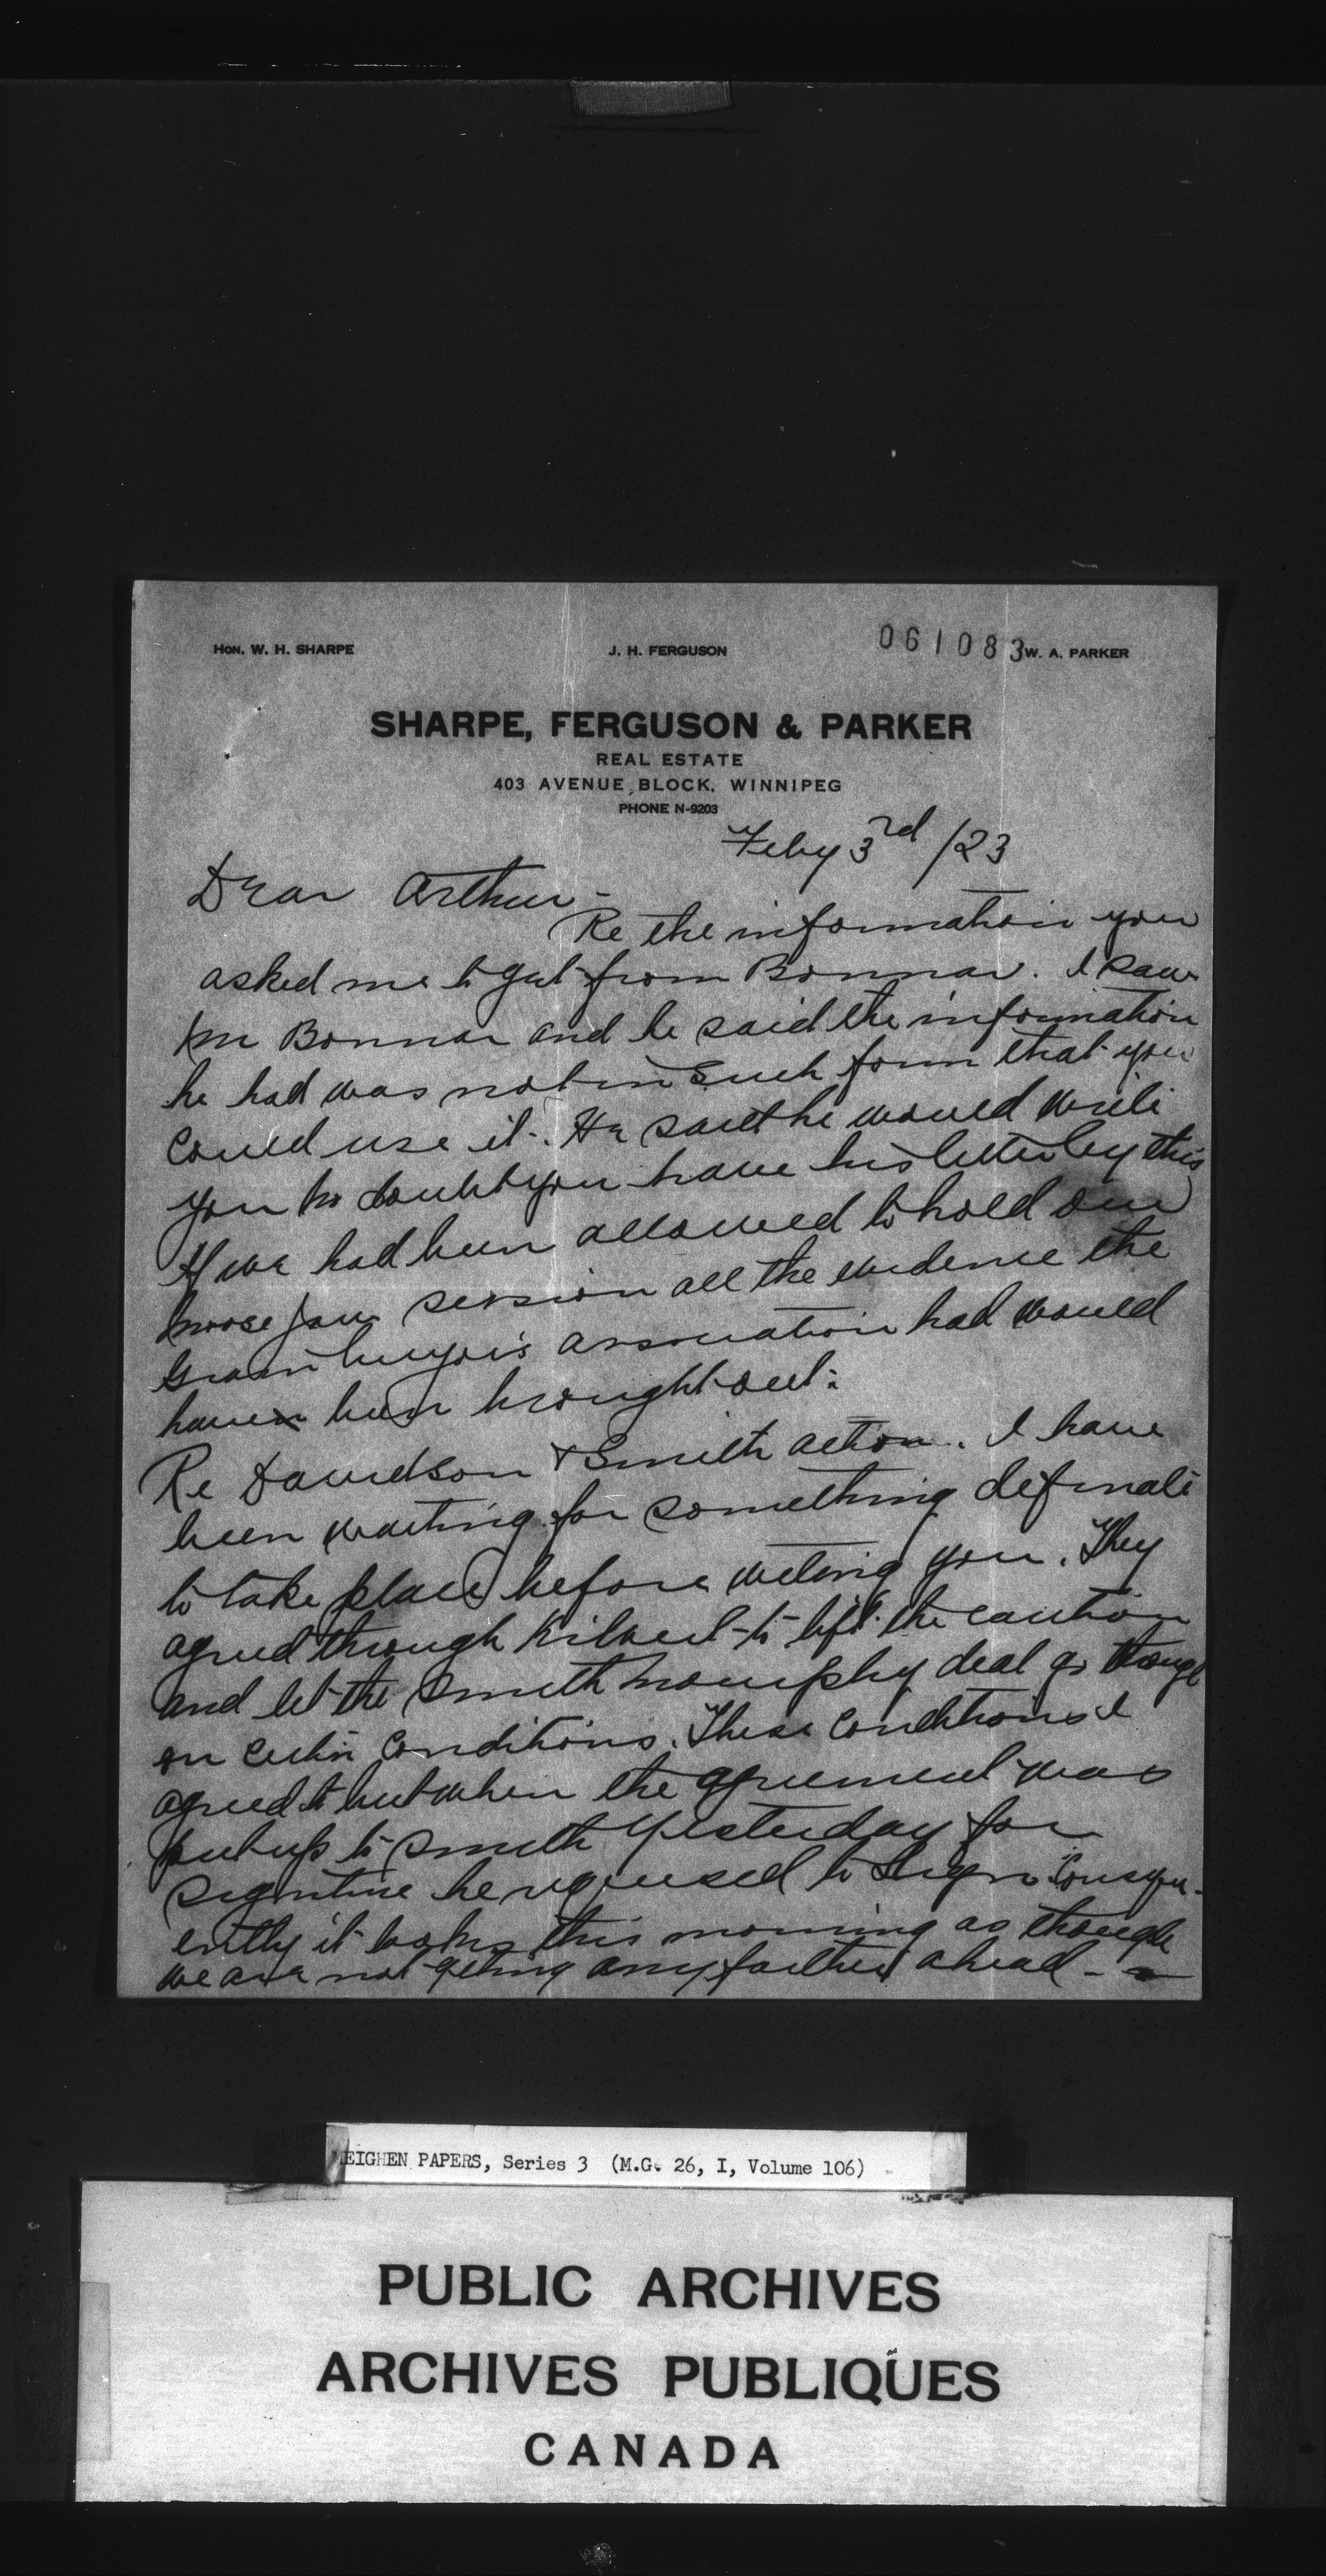 HON. W. H. SHARPE J. H. FERGUSON 061083 W. A. PARKER
SHARPE, FERGUSON & PARKER
REAL ESTATE
403 AVENUE BLOCK, WINNIPEG
PHONE N-9203
Feby 3rd /23
Dear Arthur -
Re the information you
asked me to get from Bonnar. I saw
Mr Bonnar and he said the information
he had was not in such form that you
could use it. He said he would write
you no doubt you have his letter by this
If we had been allowed to hold our
Moose Jaw session all the evidence the
Grain buyers association had would
have been brought out.
Re Davidson & Smith action. I have
been waiting for something definate
to take place before writing you. They
agreed through to lift the caution
and let the Smith Murphy deal go though
on certin conditions. These conditions I
agreed to but when the agreement was
put up to Smith yesterday for
signture he refused to sign. Consequ-
ently it looks this morning as though
we are not getting any farther ahead -
MEIGHEN PAPERS, Series 3 (M.G. 26, I, Volume 106)
PUBLIC ARCHIVES
ARCHIVES PUBLIQUES
CANADA